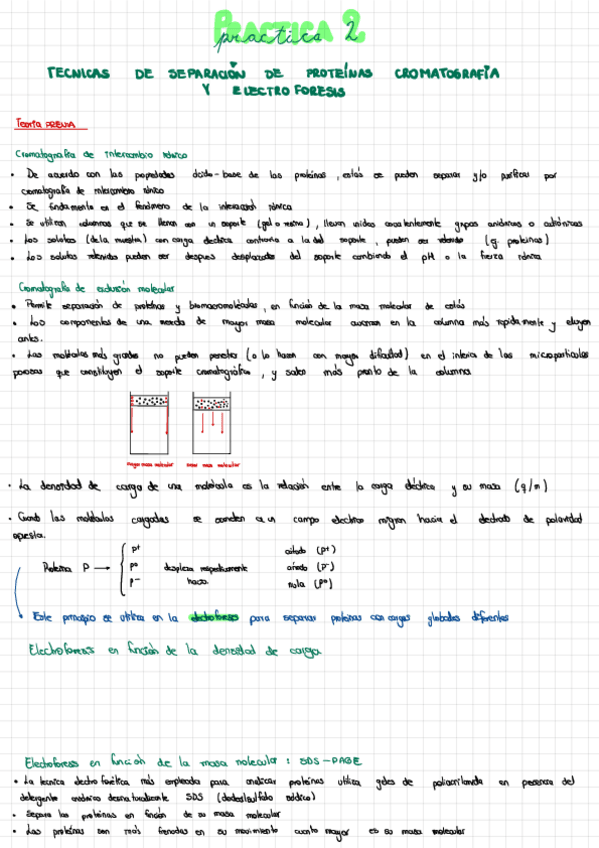 PRACTICA 2
practica 2
TECNICAS DE SEPARACIÓN DE PROTEÍNAS CROMATOGRAFÍA
Y ELECTROFORESIS
Teoría PREVIA
Cromatografía de intercambio iónico
• De acuerdo con las propiedades ácido-base de las proteínas, estás se pueden separar y/o purificar por
cromatografía de intercambio iónico
• Se fundamenta en el fenómeno de la interacción iónica
• Se utilizan columnas que se llenan con un soporte (gel o resina), llevan unidos covalentemente grupos aniónicos o catiónicos
• Los solutos (de la muestra) con carga eléctrica contraria a la del soporte, pueden ser retenido (ej. proteínas)
• Los solutos retenidos pueden ser despues desplazados del soporte cambiando el pH o la fuerza iónica
Cromatografía de exclusión molecular
• Permite separación de proteínas y biomacromoléculas, en función de la masa molecular de estás
• Los componentes de una mezcla de mayor masa molecular avanzan en la columna más rapidamente y eluyen
antes.
• Las moléculas más grandes no pueden penetrar (o lo hacen con mayor dificultad) en el interior de las microparticulas
porosas que constituyen el soporte cromatográfico, y salen más pronto de la columna
mayor masa molecular menor masa molecular
• La densidad de carga de una molécula es la relación entre la carga eléctrica y su masa (q/m)
• Cuando las moléculas cargadas se someten a un campo electrico migran hacia el electrodo de polaridad
opuesta.
P+ cátodo (P+)
Proteína P → P° desplaza respectivamente ánodo (P-)
P- hacia nula (P°)
Este principio se utiliza en la electroforesis para separar proteínas con cargas globales diferentes
Electroforesis en función de la densidad de carga
Electroforesis en función de la masa molecular: SDS-PAGE
• La tecnica electroforética más empleada para analizar proteínas utiliza geles de poliacrilamida en presencia del
detergente aniónico desnaturalizante SDS (dodecilsulfato sódico)
• Separa las proteínas en función de su masa molecular
• Las proteínas son más frenadas en su movimiento cuanto mayor es su masa molecular